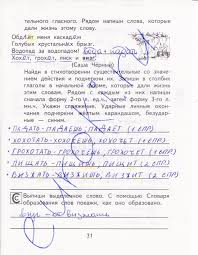 тельного гласного. Рядом напиши слова, которые
дали жизнь этому слову.
Обд ёт меня каскад н
Голубых хрустальных брызг.
Водопад за водопадом! вода + падать
Хохот, грохот, писк и визг.
(Саша Чёрный)
Найди в стихотворении существительные со значе-
нием действия и подчеркни их. В скобках запиши
глаголы в начальной форме, которые дали жизнь
этим словам. Рядом с каждым из них напиши
сначала форму 2-го л. ед.ч., затем форму 3-го л.
мн.ч. Укажи спряжение. Ударные личные окон-
чания подчеркни квадратом карандашом, безудар-
ные — синим.
• ПАДАТЬ - ПАДАЕШЬ, ПАДАЕТ (1 СПР)
• ХОХОТАТЬ - ХОХОЧЕШЬ, ХОХОЧЕТ (1 СПР.)
• ГРОХОТАТЬ - ГРОХОЧЕШЬ, ГРОХОЧЕТ (1 СПР.)
• ПИЩАТЬ - ПИЩИШЬ, ПИЩИТ (2 СПР.)
• ВИЗЖАТЬ - ВИЗЖИШЬ, ВИЗЖИТ (2 СПР.)
С Выпиши выделенное слово. С помощью Словаря
образования слов покажи, как оно образовано.
визг
31